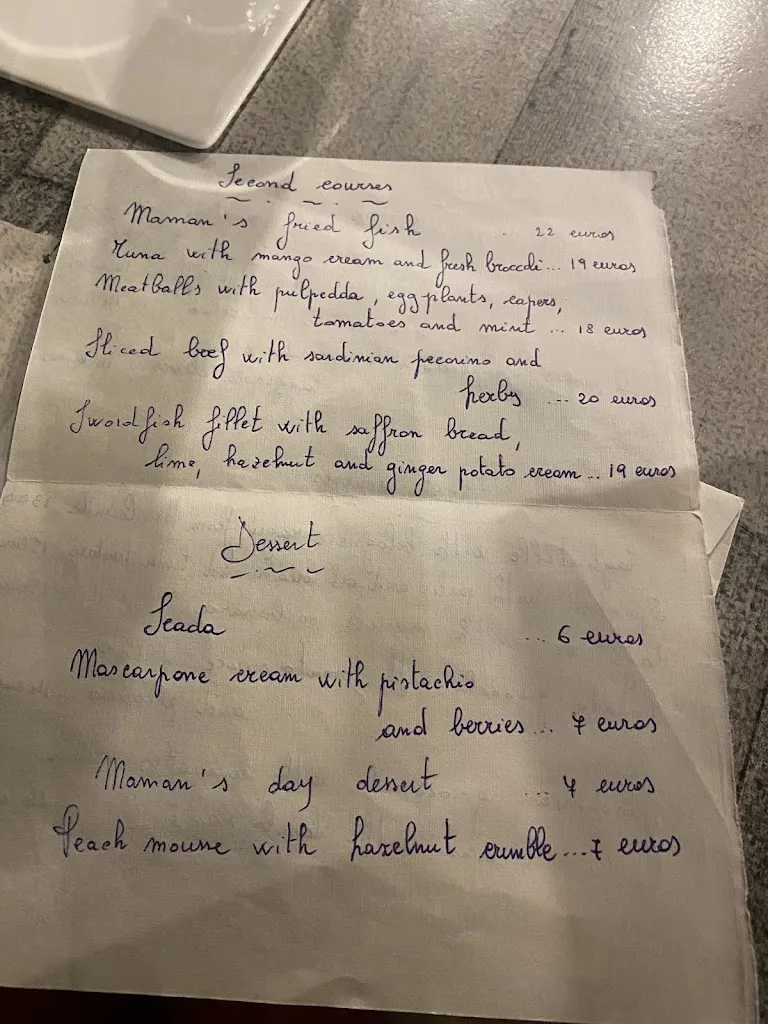 Second courses
Maman's fried fish ... 22 euros
Tuna with mango cream and fresh broccoli... 19 euros
Meatballs with pulpedda, eggplants, capers,
tomatoes and mint ... 18 euros
Sliced beef with sardinian pecorino and
herbs ... 20 euros
Swordfish fillet with saffron bread,
lime, hazelnut and ginger potato cream... 19 euros
Dessert
Seada ... 6 euros
Mascarpone cream with pistachio
and berries... 7 euros
Maman's day dessert ... 7 euros
Peach mousse with hazelnut crumble...7 euros